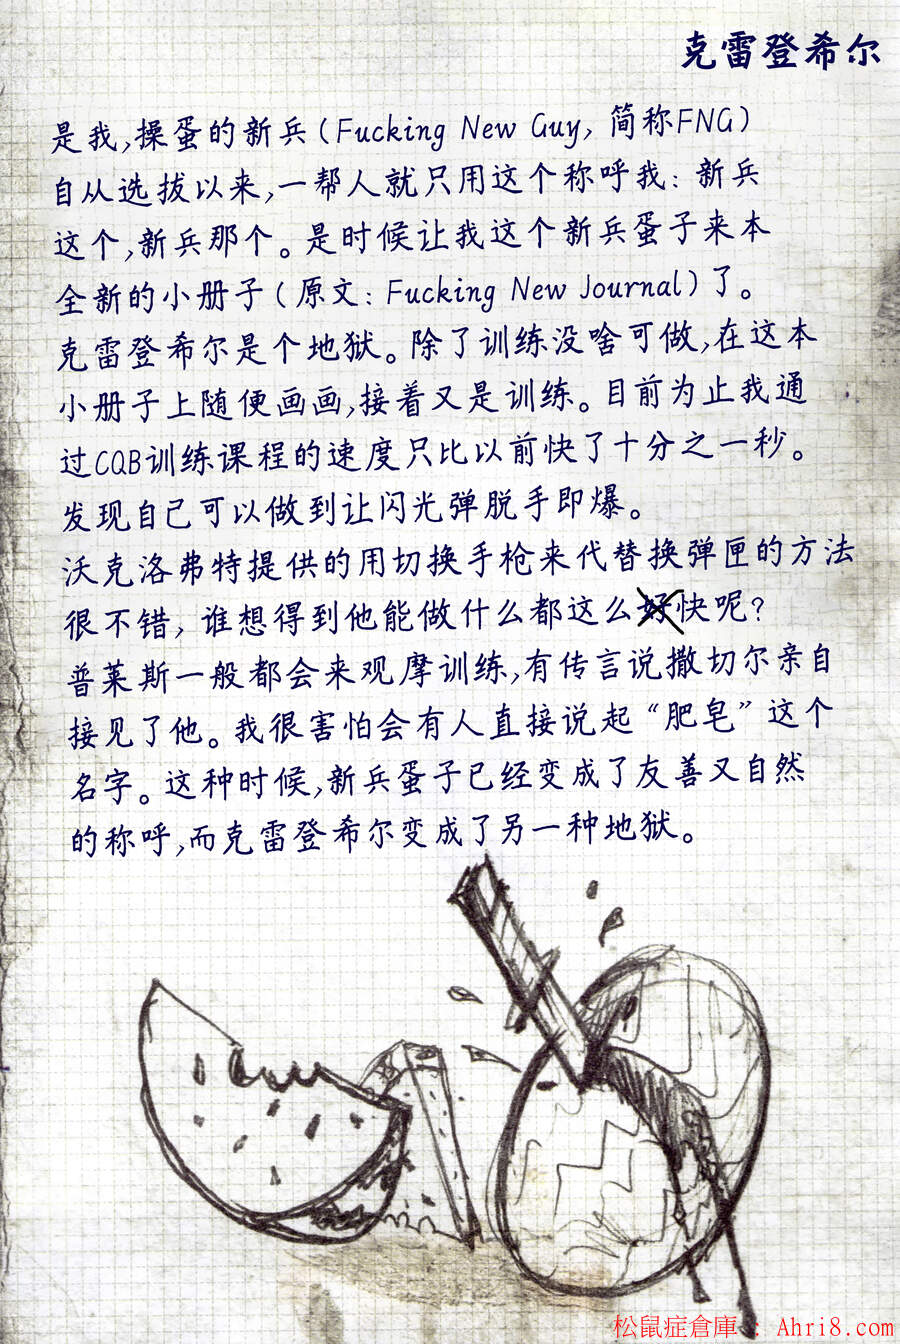 克雷登希尔
是我,操蛋的新兵(Fucking New Guy, 简称FNG)
自从选拔以来,一帮人就只用这个称呼我: 新兵
这个,新兵那个。是时候让我这个新兵蛋子来本
全新的小册子(原文: Fucking New Journal)了。
克雷登希尔是个地狱。除了训练没啥可做,在这本
小册子上随便画画,接着又是训练。目前为止我通
过CQB训练课程的速度只比以前快了十分之一秒。
发现自己可以做到让闪光弹脱手即爆。
沃克洛弗特提供的用切换手枪来代替换弹匣的方法
很不错, 谁想得到他能做什么都这么好快呢?
普莱斯一般都会来观摩训练,有传言说撒切尔亲自
接见了他。我很害怕会有人直接说起“肥皂”这个
名字。这种时候,新兵蛋子已经变成了友善又自然
的称呼,而克雷登希尔变成了另一种地狱。
松鼠症倉庫 : Ahri8.com